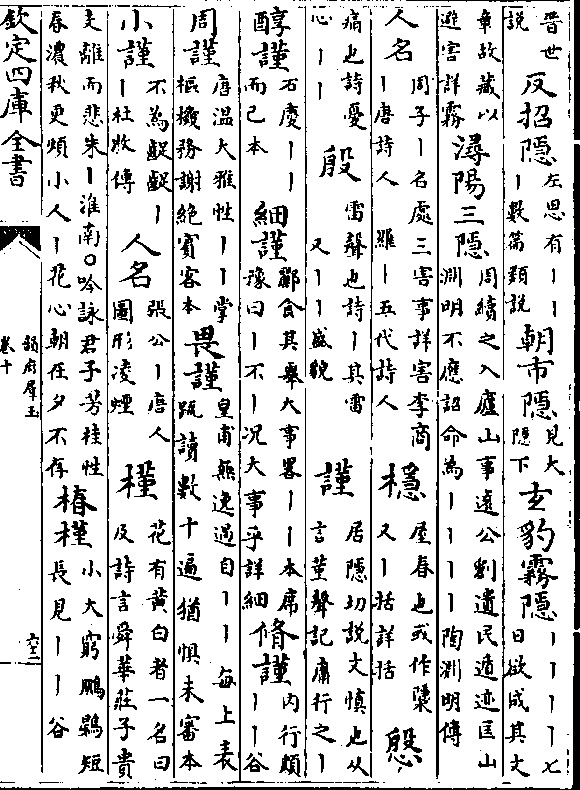 晋世
説
反招隠
左思有丨丨
丨數篇類説
朝市隠
見大
隠下
玄豹霧隠
丨丨丨丨七
日欲成其文
章故藏以
避害詳霧
潯陽三隠
周續之入廬山事遠公劉遺民遁迹匡山
淵明不應詔命為丨丨丨丨陶淵明傳
人名
周子丨名處三害事詳害李商
丨唐詩人 羅丨五代詩人
檼
屋春也或作櫽
又丨括詳括
慇
痛也詩憂
心丨丨
殷
雷聲也詩丨其雷
又丨丨盛貌
謹
居隠切説文慎也从
言堇聲記庸行之丨
醇謹
石慶丨丨
而已本
細謹
酈食其舉大事畧丨丨本席
豫曰丨不丨况大事乎詳細
脩謹
内行頗
丨丨谷
周謹
唐温大雅性丨丨掌
樞機務謝絶賓客本
畏謹
皇甫無逸過自丨丨每上表
疏讀數十遍猶惧未審本
小謹
不為齪齪丨
丨杜牧傳
人名
張公丨唐人
圖形凌煙
槿
花有黄白者一名曰
及詩言舜華莊子貴
支離而悲朱丨淮南○吟詠君子芳桂性
春濃秋更煩小人丨花心朝在夕不存
椿槿
小大窮鵬鷃短
長見丨丨谷
欽定四庫全書
韻府羣玉
卷十